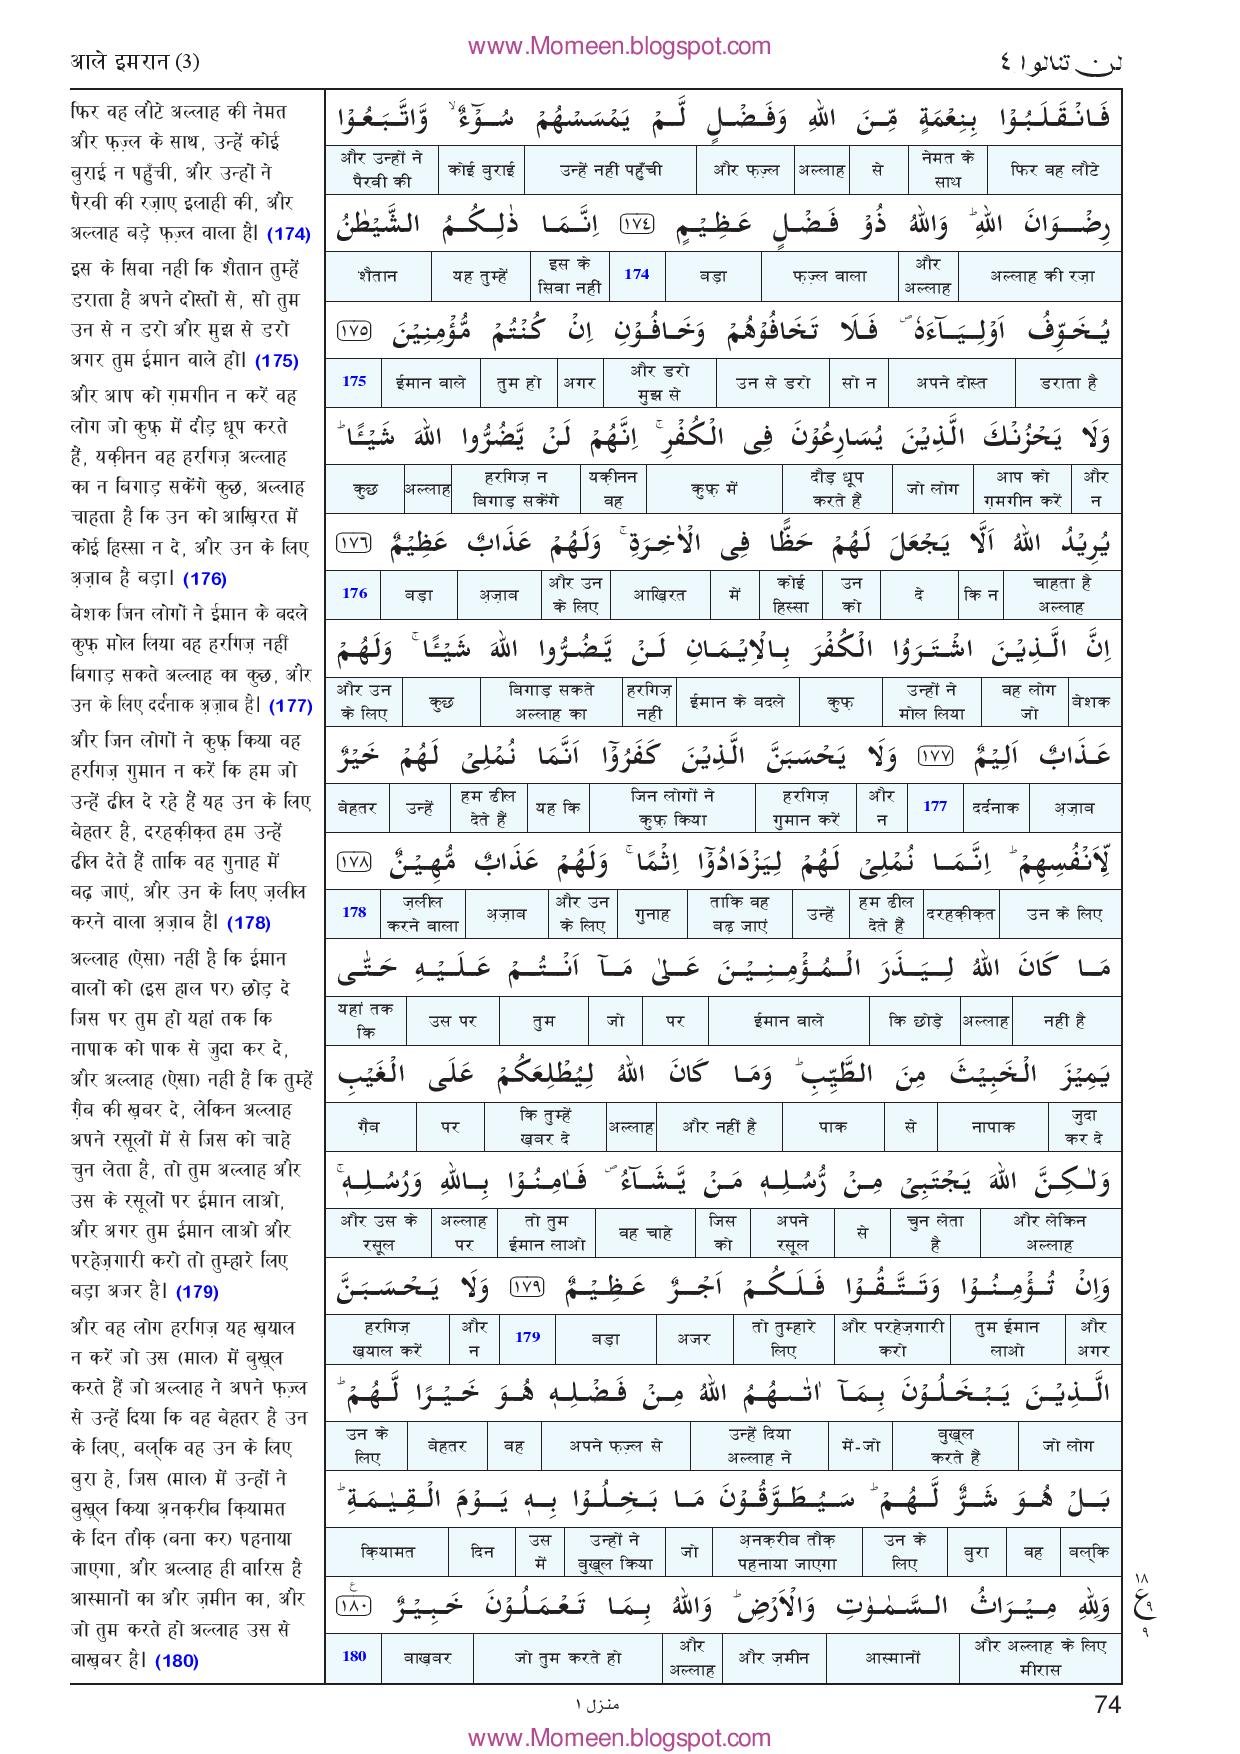 www.Momeen.blogspot.com
आले इमरान (3)
لن تنالوا ٤
फिर वह लौटे अल्लाह की नेमत
और फ़ज़्ल के साथ, उन्हें कोई
बुराई न पहुँची, और उन्हों ने
पैरवी की रज़ाए इलाही की, और
अल्लाह बड़े फ़ज़्ल वाला है। (174)
इस के सिवा नहीं कि शैतान तुम्हें
डराता है अपने दोस्तों से, सो तुम
उन से न डरो और मुझ से डरो
अगर तुम ईमान वाले हो। (175)
और आप को ग़मगीन न करें वह
लोग जो कुफ़्र में दौड़ धूप करते
हैं, यक़ीनन वह हरगिज़ अल्लाह
का न बिगाड़ सकेंगे कुछ, अल्लाह
चाहता है कि उन को आख़िरत में
कोई हिस्सा न दे, और उन के लिए
अज़ाब है बड़ा। (176)
बेशक जिन लोगों ने ईमान के बदले
कुफ़्र मोल लिया वह हरगिज़ नहीं
बिगाड़ सकते अल्लाह का कुछ, और
उन के लिए दर्दनाक अज़ाब है। (177)
और जिन लोगों ने कुफ़्र किया वह
हरगिज़ गुमान न करें कि हम जो
उन्हें ढील दे रहे हैं यह उन के लिए
बेहतर है, दरहक़ीक़त हम उन्हें
ढील देते हैं ताकि वह गुनाह में
बढ़ जाएं, और उन के लिए ज़लील
करने वाला अज़ाब है। (178)
अल्लाह (ऐसा) नहीं है कि ईमान
वालों को (इस हाल पर) छोड़ दे
जिस पर तुम हो यहां तक कि
नापाक को पाक से जुदा कर दे,
और अल्लाह (ऐसा) नहीं है कि तुम्हें
ग़ैब की ख़बर दे, लेकिन अल्लाह
अपने रसूलों में से जिस को चाहे
चुन लेता है, तो तुम अल्लाह और
उस के रसूलों पर ईमान लाओ,
और अगर तुम ईमान लाओ और
परहेज़गारी करो तो तुम्हारे लिए
बड़ा अजर है। (179)
और वह लोग हरगिज़ यह ख़याल
न करें जो उस (माल) में बुख़्ल
करते हैं जो अल्लाह ने अपने फ़ज़्ल
से उन्हें दिया कि वह बेहतर है उन
के लिए, बल्कि वह उन के लिए
बुरा हे, जिस (माल) में उन्हों ने
बुख़्ल किया अ़नक़रीब क़ियामत
के दिन तौक़ (बना कर) पहनाया
जाएगा, और अल्लाह ही वारिस है
आस्मानों का और ज़मीन का, और
जो तुम करते हो अल्लाह उस से
बाख़बर है। (180)
فَانْقَلَبُوْا بِنِعْمَةٍ مِّنَ اللّٰهِ وَفَضْلٍ لَّمْ يَمْسَسْهُمْ سُوْٓءٌ ۙ وَّاتَّبَعُوْا
फिर वह लौटे | नेमत के साथ | से | अल्लाह | और फ़ज़्ल | उन्हें नहीं पहुँची | कोई बुराई | और उन्हों ने पैरवी की
رِضْوَانَ اللّٰهِ ۗ وَاللّٰهُ ذُوْ فَضْلٍ عَظِيْمٍ ١٧٤ اِنَّمَا ذٰلِكُمُ الشَّيْطٰنُ
अल्लाह की रज़ा | और अल्लाह | फ़ज़्ल वाला | बड़ा | 174 | इस के सिवा नहीं | यह तुम्हें | शैतान
يُخَوِّفُ اَوْلِيَآءَهٗ ۖ فَلَا تَخَافُوْهُمْ وَخَافُوْنِ اِنْ كُنْتُمْ مُّؤْمِنِيْنَ ١٧٥
डराता है | अपने दोस्त | सो न | उन से डरो | और डरो मुझ से | अगर | तुम हो | ईमान वाले | 175
وَلَا يَحْزُنْكَ الَّذِيْنَ يُسَارِعُوْنَ فِى الْكُفْرِ ۚ اِنَّهُمْ لَنْ يَّضُرُّوا اللّٰهَ شَيْـًٔا ۗ
और न | आप को ग़मगीन करें | जो लोग | दौड़ धूप करते हैं | कुफ़्र में | यक़ीनन वह | हरगिज़ न बिगाड़ सकेंगे | अल्लाह | कुछ
يُرِيْدُ اللّٰهُ اَلَّا يَجْعَلَ لَهُمْ حَظًّا فِى الْاٰخِرَةِ ۚ وَلَهُمْ عَذَابٌ عَظِيْمٌ ١٧٦
चाहता है अल्लाह | कि न | दे | उन को | कोई हिस्सा | में | आख़िरत | और उन के लिए | अज़ाब | बड़ा | 176
اِنَّ الَّذِيْنَ اشْتَرَوُا الْكُفْرَ بِالْاِيْمَانِ لَنْ يَّضُرُّوا اللّٰهَ شَيْـًٔا ۚ وَلَهُمْ
बेशक | वह लोग जो | उन्हों ने मोल लिया | कुफ़्र | ईमान के बदले | हरगिज़ नहीं | बिगाड़ सकते अल्लाह का | कुछ | और उन के लिए
عَذَابٌ اَلِيْمٌ ١٧٧ وَلَا يَحْسَبَنَّ الَّذِيْنَ كَفَرُوْٓا اَنَّمَا نُمْلِىْ لَهُمْ خَيْرٌ
अज़ाब | दर्दनाक | 177 | और न | हरगिज़ गुमान करें | जिन लोगों ने कुफ़्र किया | यह कि | हम ढील देते हैं | उन्हें | बेहतर
لِّاَنْفُسِهِمْ ۗ اِنَّمَا نُمْلِىْ لَهُمْ لِيَزْدَادُوْٓا اِثْمًا ۚ وَلَهُمْ عَذَابٌ مُّهِيْنٌ ١٧٨
उन के लिए | दरहक़ीक़त | हम ढील देते हैं | उन्हें | ताकि वह बढ़ जाएं | गुनाह | और उन के लिए | अज़ाब | ज़लील करने वाला | 178
مَا كَانَ اللّٰهُ لِيَذَرَ الْمُؤْمِنِيْنَ عَلٰى مَآ اَنْتُمْ عَلَيْهِ حَتّٰى
नहीं है | अल्लाह | कि छोड़े | ईमान वाले | पर | जो | तुम | उस पर | यहां तक कि
يَمِيْزَ الْخَبِيْثَ مِنَ الطَّيِّبِ ۗ وَمَا كَانَ اللّٰهُ لِيُطْلِعَكُمْ عَلَى الْغَيْبِ
जुदा कर दे | नापाक | से | पाक | और नहीं है | अल्लाह | कि तुम्हें ख़बर दे | पर | ग़ैब
وَلٰكِنَّ اللّٰهَ يَجْتَبِىْ مِنْ رُّسُلِهٖ مَنْ يَّشَآءُ ۖ فَاٰمِنُوْا بِاللّٰهِ وَرُسُلِهٖ ۚ
और लेकिन अल्लाह | चुन लेता है | से | अपने रसूल | जिस को | वह चाहे | तो तुम ईमान लाओ | अल्लाह पर | और उस के रसूल
وَاِنْ تُؤْمِنُوْا وَتَتَّقُوْا فَلَكُمْ اَجْرٌ عَظِيْمٌ ١٧٩ وَلَا يَحْسَبَنَّ
और अगर | तुम ईमान लाओ | और परहेज़गारी करो | तो तुम्हारे लिए | अजर | बड़ा | 179 | और न | हरगिज़ ख़याल करें
الَّذِيْنَ يَبْخَلُوْنَ بِمَآ اٰتٰىهُمُ اللّٰهُ مِنْ فَضْلِهٖ هُوَ خَيْرًا لَّهُمْ ۗ
जो लोग | बुख़्ल करते हैं | में-जो | उन्हें दिया अल्लाह ने | अपने फ़ज़्ल से | वह | बेहतर | उन के लिए
بَلْ هُوَ شَرٌّ لَّهُمْ ۗ سَيُطَوَّقُوْنَ مَا بَخِلُوْا بِهٖ يَوْمَ الْقِيٰمَةِ ۗ
बल्कि | वह | बुरा | उन के लिए | अ़नक़रीब तौक़ पहनाया जाएगा | जो | उन्हों ने बुख़्ल किया | उस में | दिन | क़ियामत
وَلِلّٰهِ مِيْرَاثُ السَّمٰوٰتِ وَالْاَرْضِ ۗ وَاللّٰهُ بِمَا تَعْمَلُوْنَ خَبِيْرٌ ١٨٠ ع
और अल्लाह के लिए मीरास | आस्मानों | और ज़मीन | और अल्लाह | जो तुम करते हो | बाख़बर | 180
١٨
ع ٩
٩
منزل ١
74
www.Momeen.blogspot.com